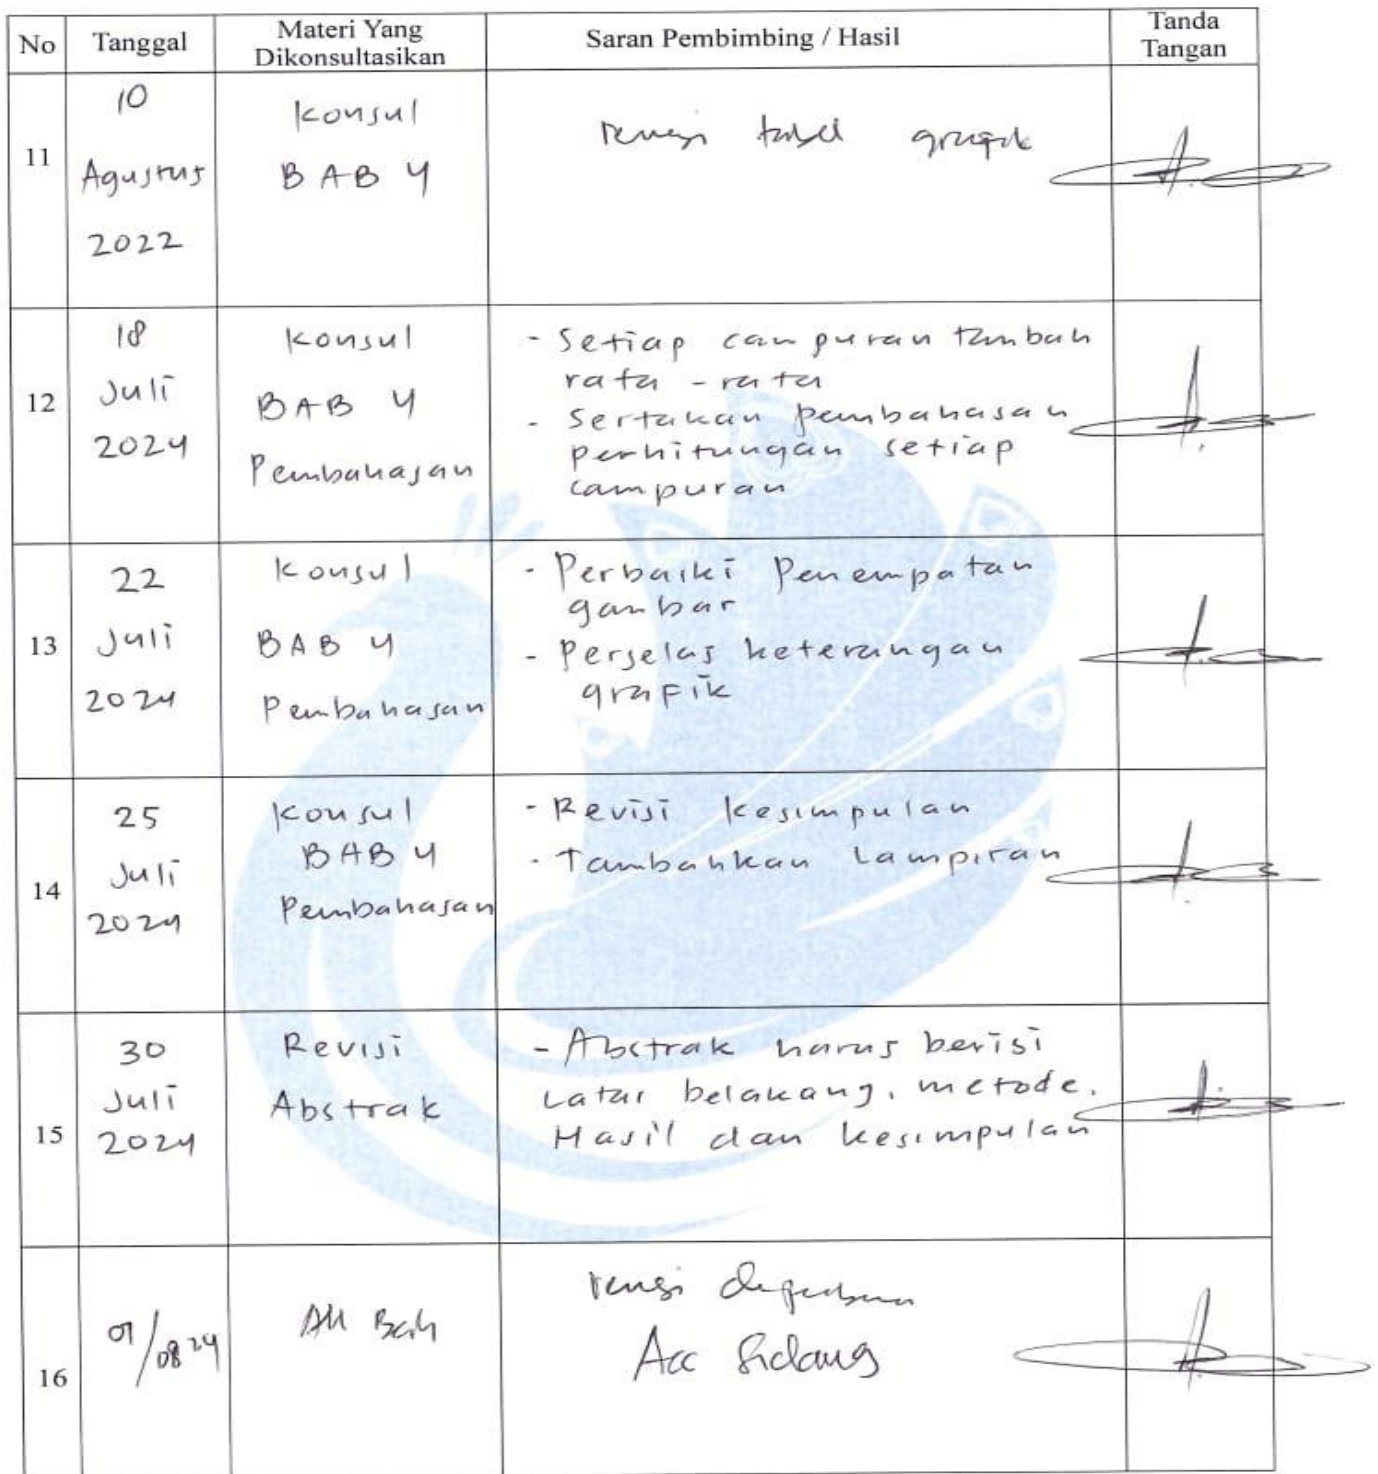 No Tanggal Materi Yang Dikonsultasikan Saran Pembimbing / Hasil Tanda Tangan
11
10
Agustus
2022
Konsul
BAB 4
revisi tabel grafik
12
18
Juli
2024
Konsul
BAB 4
Pembahasan
- Setiap campuran tambah
rata - rata
- Sertakan pembahasan
perhitungan setiap
campuran
13
22
Juli
2024
Konsul
BAB 4
Pembahasan
- Perbaiki Penempatan
gambar
- Perjelas keterangan
grafik
14
25
Juli
2024
Konsul
BAB 4
Pembahasan
- Revisi kesimpulan
- Tambahkan Lampiran
15
30
Juli
2024
Revisi
Abstrak
- Abstrak harus berisi
Latar belakang, metode,
Hasil dan kesimpulan
16
01/08 24
All
revisi
Acc Sidang